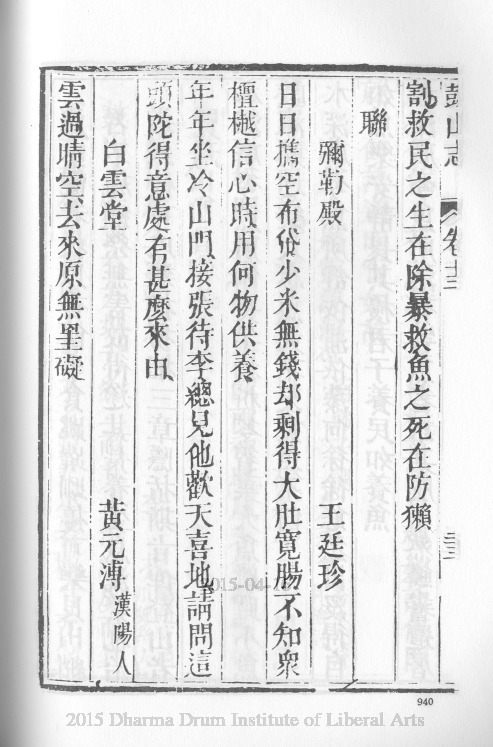 鼓山志 卷十三 三三
割救民之生在除暴救魚之死在防獺
聯
彌勒殿 王廷珍
日日擕空布袋少米無錢却剩得大肚寛腸不知衆
檀樾信心時用何物供養
年年坐冷山門接張待李總見他歡天喜地請問這
頭陀得意處有甚麽來由
白雲堂 黃元溥漢陽人
雲過晴空去來原無罣礙
940
2015-04-
2015 Dharma Drum Institute of Liberal Arts